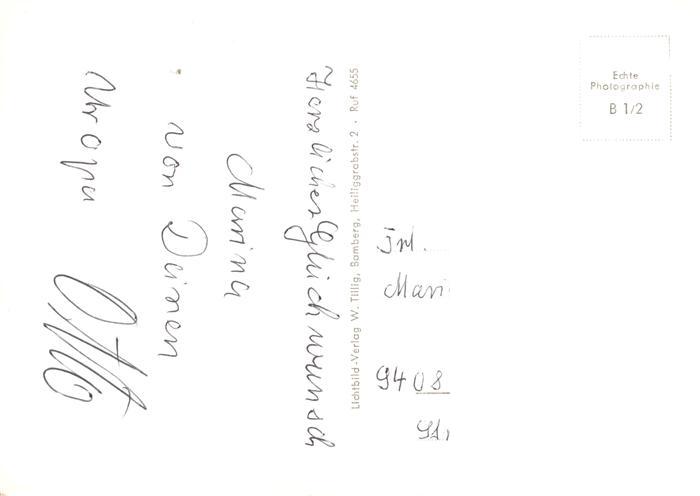 Herzlichen Glückwunsch
Marina
von Deinen
Uropa
Otto
Lichtbild-Verlag W. Tillig, Bamberg, Heiliggrabstr. 2 · Ruf 4655
Echte
Photographie
B 1/2
Frl.
Mari
9408